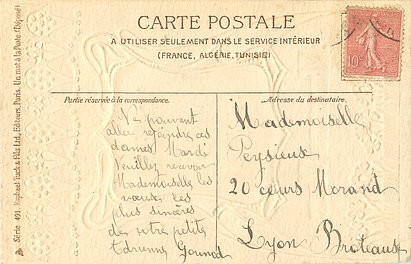 CARTE POSTALE
A UTILISER SEULEMENT DANS LE SERVICE INTÉRIEUR
(FRANCE, ALGÉRIE, TUNISIE)
Partie réservée à la correspondance.
Adresse du destinataire.
Ne pouvant
aller rejoindre ces
dames Mardi
Veuillez recevoir
Mademoiselle les
vœux les
plus sincères
de votre petite
Adrienne Gounod
Mademoiselle
Peysieux
20 cours Morand
Lyon Broteaux
10
Série 491. Raphael Tuck & Fils Ltd, Editeurs, Paris. Un mot à la Poste (Déposé)